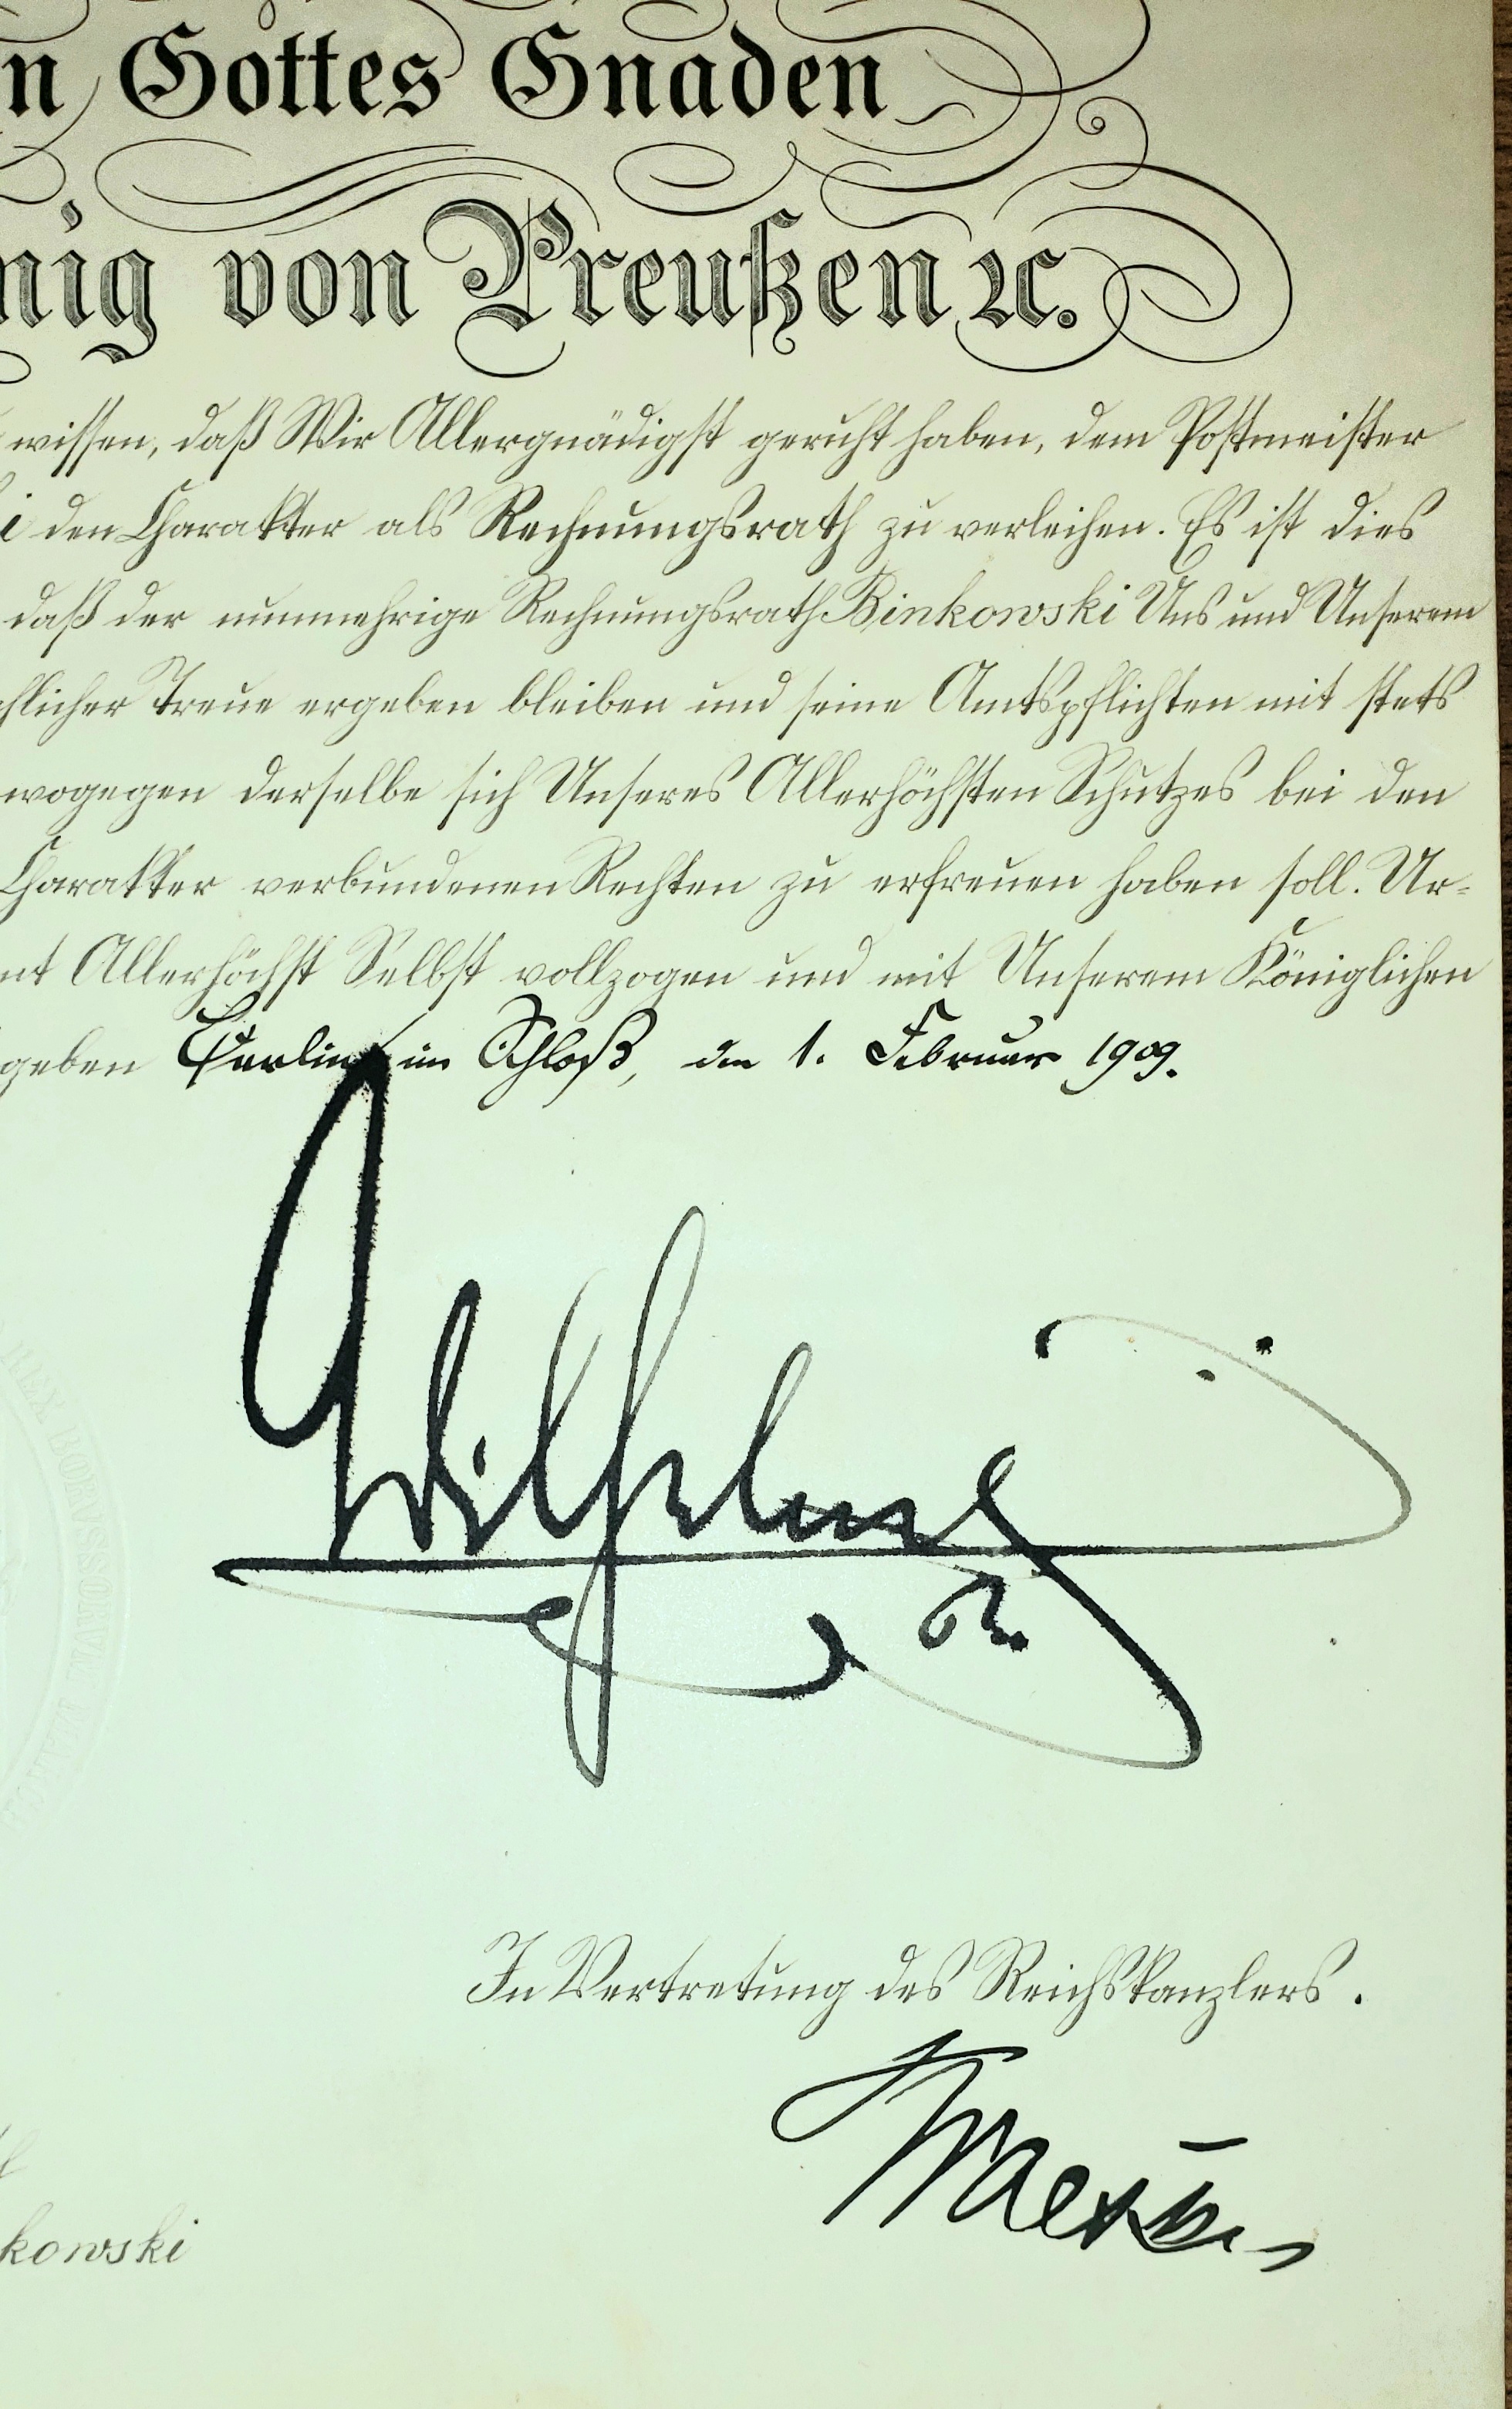 n Gottes Gnaden
nig von Preußen ꝛc.
wissen, daß Wir Allergnädigst geruht haben, dem Postmeister
i den Charakter als Rechnungsrath zu verleihen. Es ist dies
daß der nunmehrige Rechnungsrath Binkowski Uns und Unserem
licher Treue ergeben bleiben und seine Amtspflichten mit stets
wogegen derselbe sich Unseres Allerhöchsten Schutzes bei den
Charakter verbundenen Rechten zu erfreuen haben soll. Ur-
nt Allerhöchst Selbst vollzogen und mit Unserem Königlichen
geben Berlin im Schloß, den 1. Februar 1909.
Wilhelm
R.
In Vertretung des Reichskanzlers.
kowski